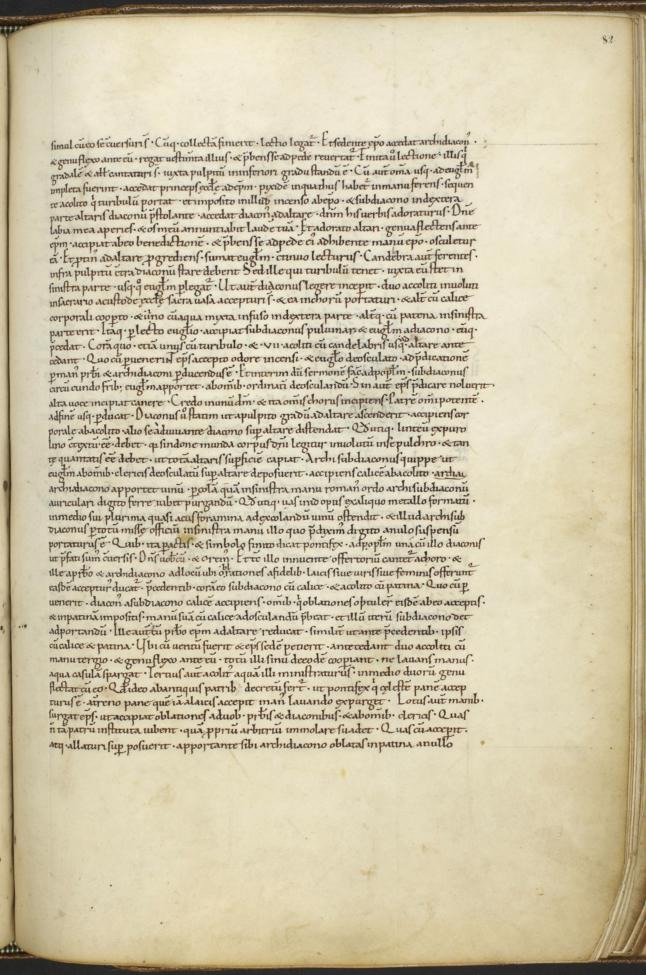 82
simul cū eo se cūuersuris · Cūq; collectā finierit · lectio legať · Et sedente ep̄o accedat archidiacon̄ ·
& genu flexo ante eū · roget uestim̄ta illius · & p̄hensse ad pede reuertať · Finita ū lectione · illisq̄
gradale & all̄ cantaturi s̄ · iuxta pulpitū in inferiori gradu standū ē · Cū aut om̄a usq; ad euglm̄
impleta fuerint · accedat princeps eccłe ad ep̄m · pixide in quathus haber in manu ferens · sequen
te acolito q̄ turibulū portat · et imposito in illud incenso ab ep̄o · & subdiacono in dextera
parte altaris diaconū p̄stolante · accedat diacon̄ ad altare · dn̄m his uerbis adoraturus · Dn̄e
labia mea aperies · & os meū annuntiabit laude tuā · Et adorato altari · genua flectens ante
ep̄m · accipiat ab eo benedictionē · & p̄hensse ad pede ei adhibente manū ep̄o · osculetur
eū · Exptim ad altare p̄grediens · sumat euglm̄ · lecturus · Candelabra aut ferentes ·
infra pulpitū c̄tra diaconū stare debent Sed ille qui turibulū tenet · iuxta eū stet in
sinistra parte · usq; q̄ euglm̄ p̄legať · Ut aut diaconus legere incepit · duo accoliti inuoluti
in sacrario a custode eccłe sacra uasa accepturi s̄ · & ea in chorū portaturi · & altē cū calice
corporali coopto · & uino cū aqua mixta infuso in dextera parte · altq; cū patena in sinistra
parte erit · Itaq; p̄lecto euglio · accipiat subdiaconus puluinar & euglm̄ a diacono · eūq;
p̄cedat · Corā quo · etiā unus cū turibulo · & VII acoliti cū candelabris usq; altare ante
cedant · Quo cū puenerint eps̄ accepto odore incensi · & euglio deosculato · ad p̄dicationē
p̄ man̄ prb̄i & archidiaconi p̄ducendus ē · Et interim dū sermonē faç ad popłm · subdiaconus
circū eundo frib; euglm̄ apportet · ab om̄ib · ordinatī deosculandū · Sin aut eps̄ p̄dicare noluerit ·
alta uoce incipiat canere · Credo in unū dm̄ · & ita om̄is chorus incipiens · Patrē om̄ipotentē ·
ad fine usq; p̄ducat · Diaconus ū statim ut a pulpito gradū ad altare ascenderit · accipiens cor
porale ab acolito · alio se adiuuante diacono sup altare distendat · Qd utiq; linteū ex puro
lino c̄textū ēē debet · q̄ sindone munda corpus dn̄i legitur inuolutū in sepulchro · & tan
tę quantatis ēē debet · ut totā altaris supficiē capiat · Archisubdiaconus quippe ut
euglm̄ ab om̄ib · clericis deosculatū sup altare deposuerit · accipiens calicē ab acolito · archia
archidiacono apportet uinū · p̄ colā quā in sinistra manu roman̄ ordo archisubdiaconū
auriculari digito ferre iubet purgandū · Qd utiq; uas in id opus ex aliquo metallo formatū ·
in medio sui plurima quasi acus foramina ad excolandū uinū ostendit · & illud archisub
diaconus p̄ totū missę officiū in sinistra manu illo quo p̄diximˀ digito anulo suspensū
portaturus ē · Quib; ita pactis · & simbolo finito dicat pontifex · ad popłm una cū illo diaconis
ut p̄fati sum̄ c̄uersis · Dn̄s uobcū · & orem̄ · Et te illo innuente offertoriū canteť a choro · &
ille a prb̄o & archidiacono ad locū ubi oblationes a fidelib · laicis siue uiris siue feminis offerunt
easdē accepturˀ ducat · p̄cedentib · corā eo subdiacono cū calice · & acolito cū patina · Quo cū p
uenerit · diacon̄ a subdiacono calicē accipiens · om̄ib; q̄ oblationes optuler eisdē ab eo acceptis ·
& in patina impositis · manū suā cū calice ad osculandū p̄beat · et illū iterū subdiacono det
ad portandū · Ille aut cū prb̄o ep̄m ad altare reducat · similiť ut ante p̄cedentib · ipsis
cū calice & patina · Ubi cū uentū fuerit & eps̄ sede petierit · antecedant duo accoliti cū
manutergio · & genu flexo ante eū · totū illi sinū de eode coopiant · ne lauans manus ·
aqua casulā spargat · Tertius aut acolitˀ aquā illi ministraturus · in medio duorū genu
flectat cū eo · Qd ideo ab antiquis patrib; decretū ferť · ut pontifex q̄ cęleste pane accep
turus ē · a terreno pane que iā a laicis accepit man̄ lauando expurget · Lotus aut manib ·
surgat eps̄ · ut accipiat oblationes a duob · prb̄is & diaconibus · & ab om̄ib · clericˀ · Quas
n̄ tā patrū instituta iubent · quā p̄priū arbitriū immolare suadet · Quas cū acceperit ·
atq; allaturi sup posuerit · apportante sibi archidiacono oblatas in patina an ullo